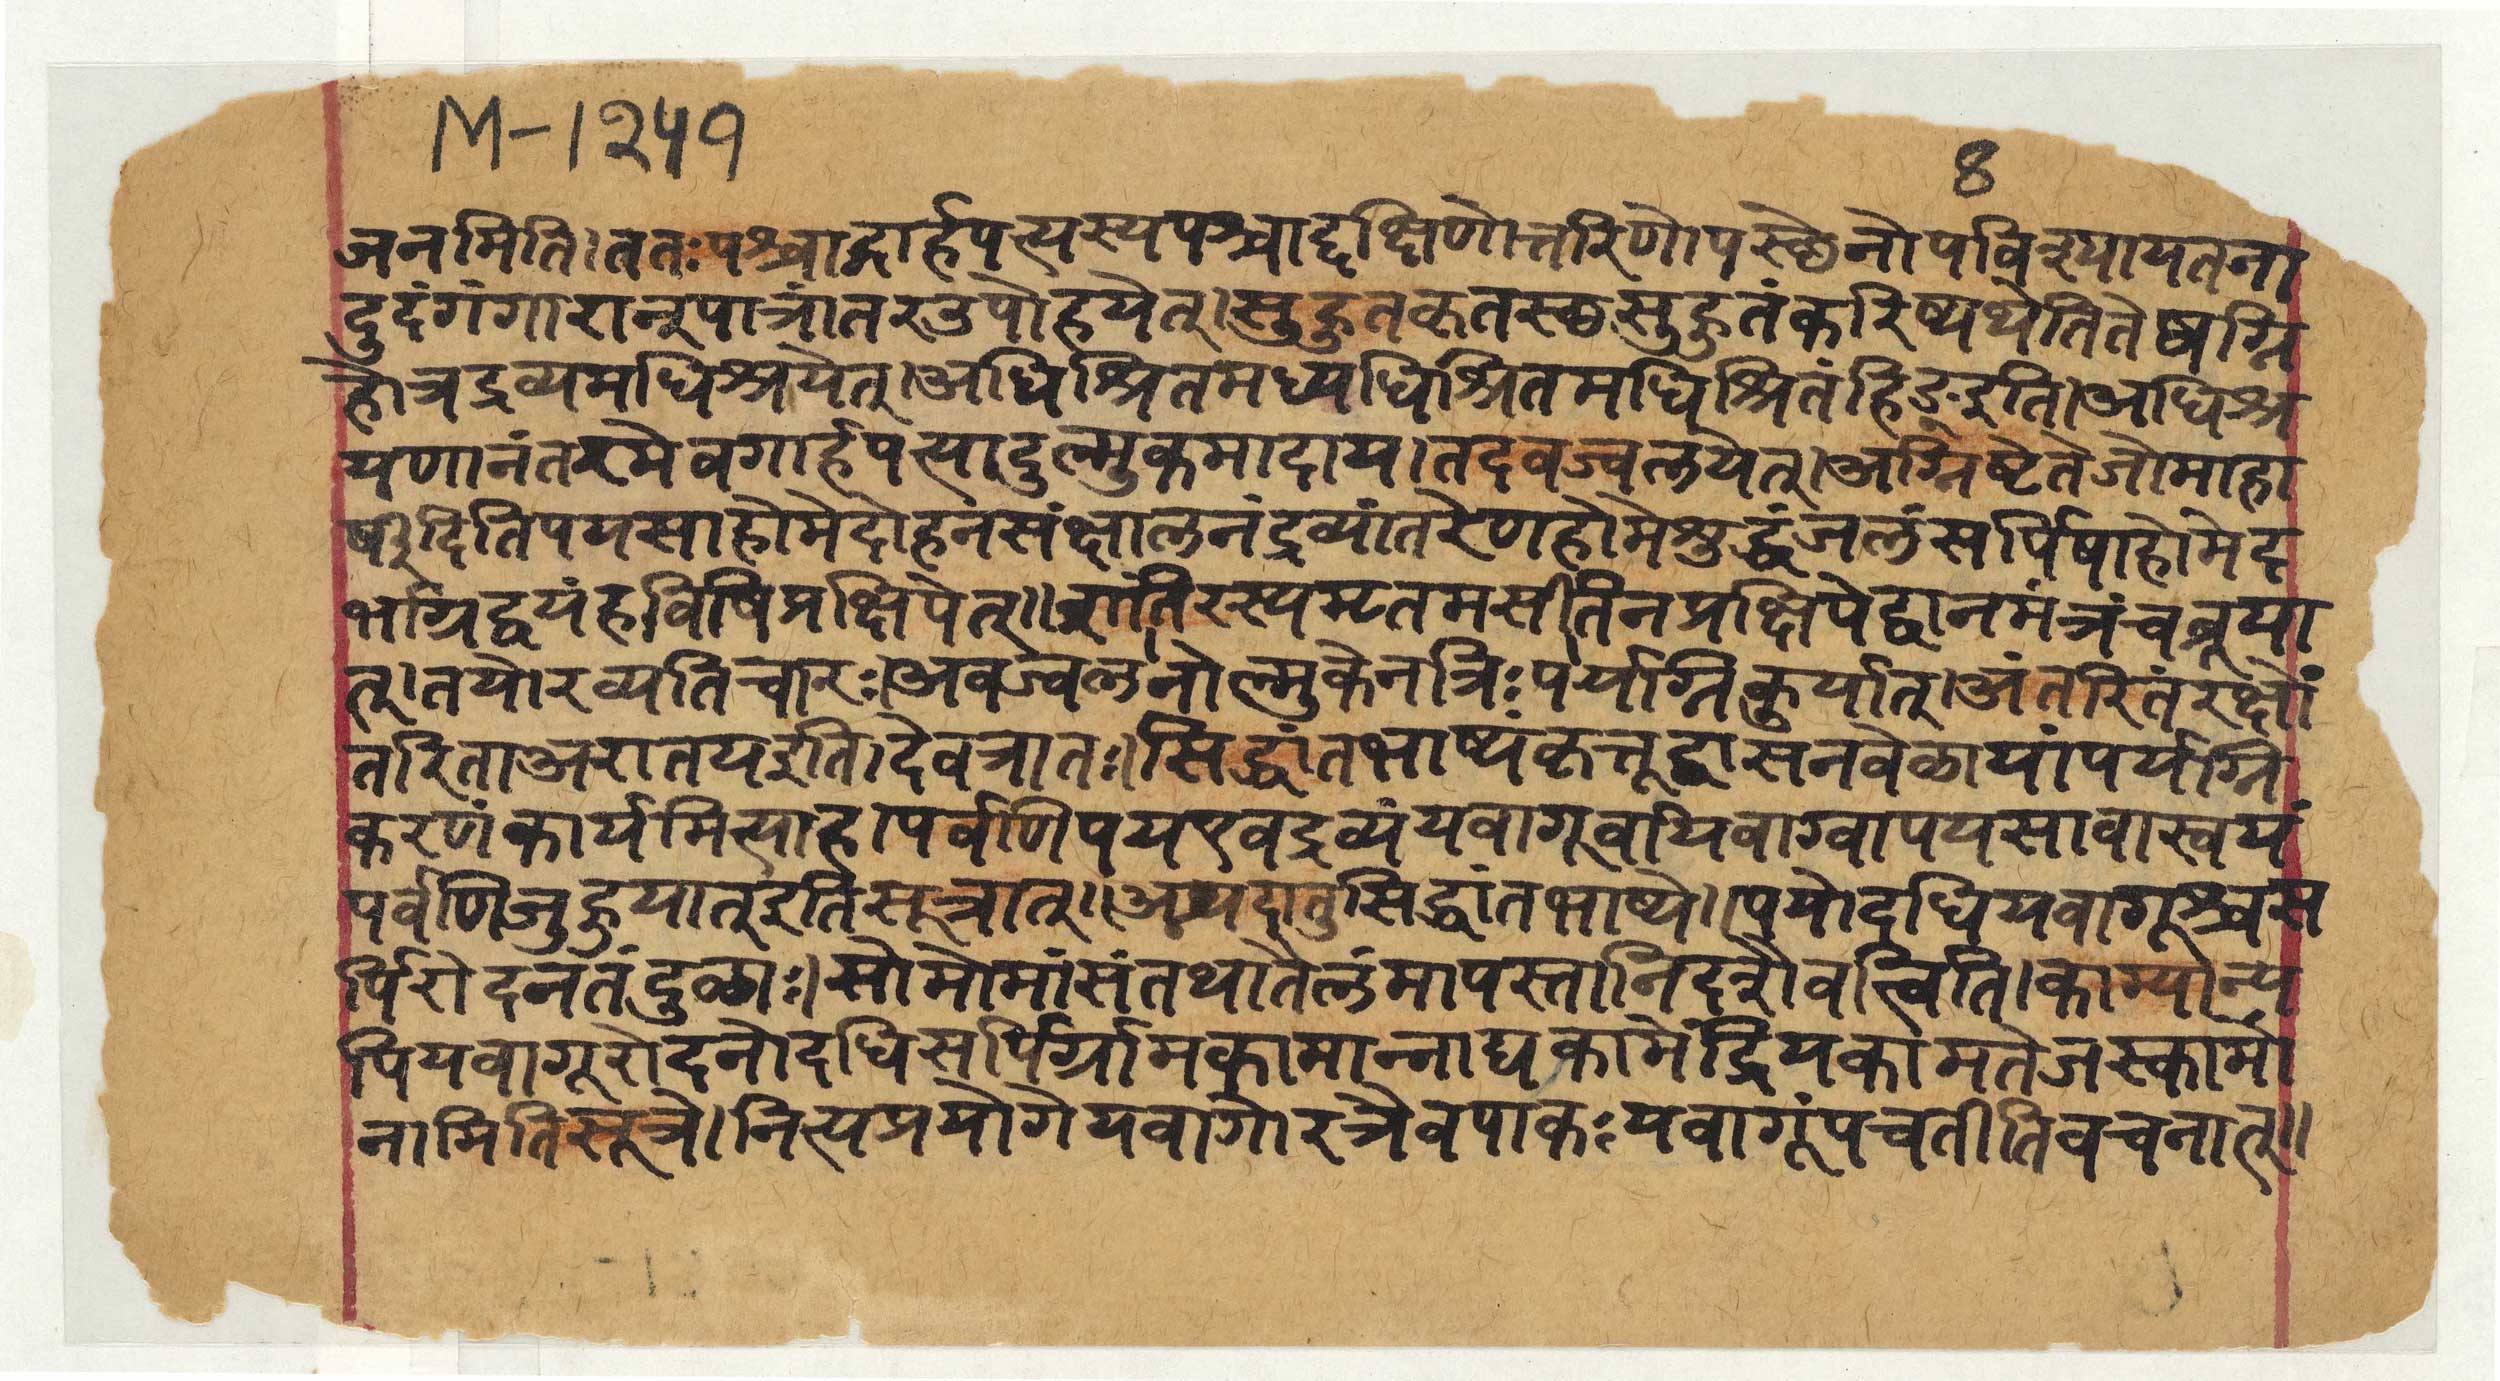 M-१२५१
8
जनमिति।ततःपश्चाद्गार्हपत्यस्यपश्चाद्दक्षिणोत्तरिणोपस्छेनोपविश्यायतना
दुदंगंगारानूपात्रांतरउपोहयेत्।सुहुतकृतस्छसुहुतंकरिष्यथेतितेष्वग्नि
होत्रद्रव्यमधिश्रयेत्।अधिश्रितमध्यधिश्रितमधिश्रितंहिङ्इति।अधिश्र
यणानंतरमेवगार्हपत्यादुल्मुकमादाय।तदवज्वलयेत्।अग्निष्टेतेजोमाहा
र्षीदितिपयसाहोमेदोहनसंक्षालनंद्रव्यांतरेणहोमेशुद्धंजलंसर्पिषाहोमेद
र्भाग्रद्वयंहविषिप्रक्षिपेत्॥शांतिरस्यमृतमसीतिनप्रक्षिपेद्वानमंत्रंचब्रूया
त्।तयोरव्यतिचारः।अवज्वलनोल्मुकेनत्रिःपर्यग्निकुर्यात्।अंतरितंरक्षों
तरिताअरातयइति।देवत्रातः।सिद्धांतभाष्यंकृत्तूद्वासनवेळायांपर्यग्नि
करणंकार्यमित्याह।पर्वणिपयएवद्रव्यंयवागूर्वायवाग्वापयसावास्वयं
पर्वणिजुहुयात्इतिसूत्रात्॥सिद्धांतभाष्ये॥पयोदधियवागूश्चस
र्पिरोदनंतंदुळाः।सोमोमांसंतथातैलंमापस्तानिदशैवत्विति।काम्यान्य
पियवागूरोदनोदधिसर्पिर्ग्रामकामान्नाद्यकामेंद्रियकामतेजस्कामा
नामितिसूत्रे।नित्यप्रयोगेयवागोरत्रैवपाकःयवागूंपचतीतिवचनात्॥